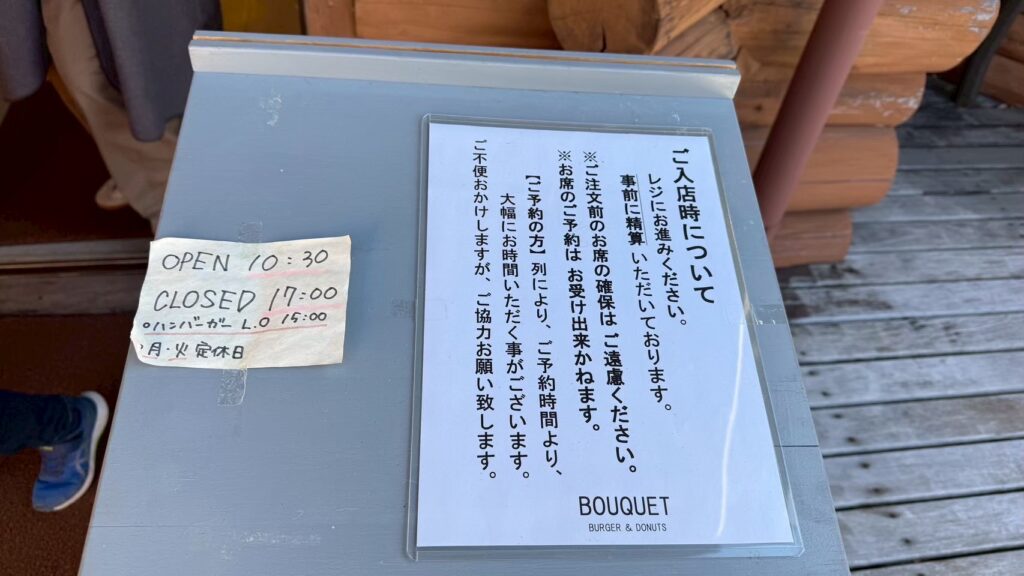 OPEN 10:30
CLOSED 17:00
○ハンバーガー L.O 15:00
月・火 定休日
ご入店時について
レジにお進みください。
事前に精算 いただいております。
※ご注文前のお席の確保は ご遠慮ください。
※お席のご予約は お受け出来かねます。
【ご予約の方】列により、ご予約時間より、
大幅にお時間いただく事がございます。
ご不便おかけしますが、ご協力お願い致します。
BOUQUET
BURGER & DONUTS